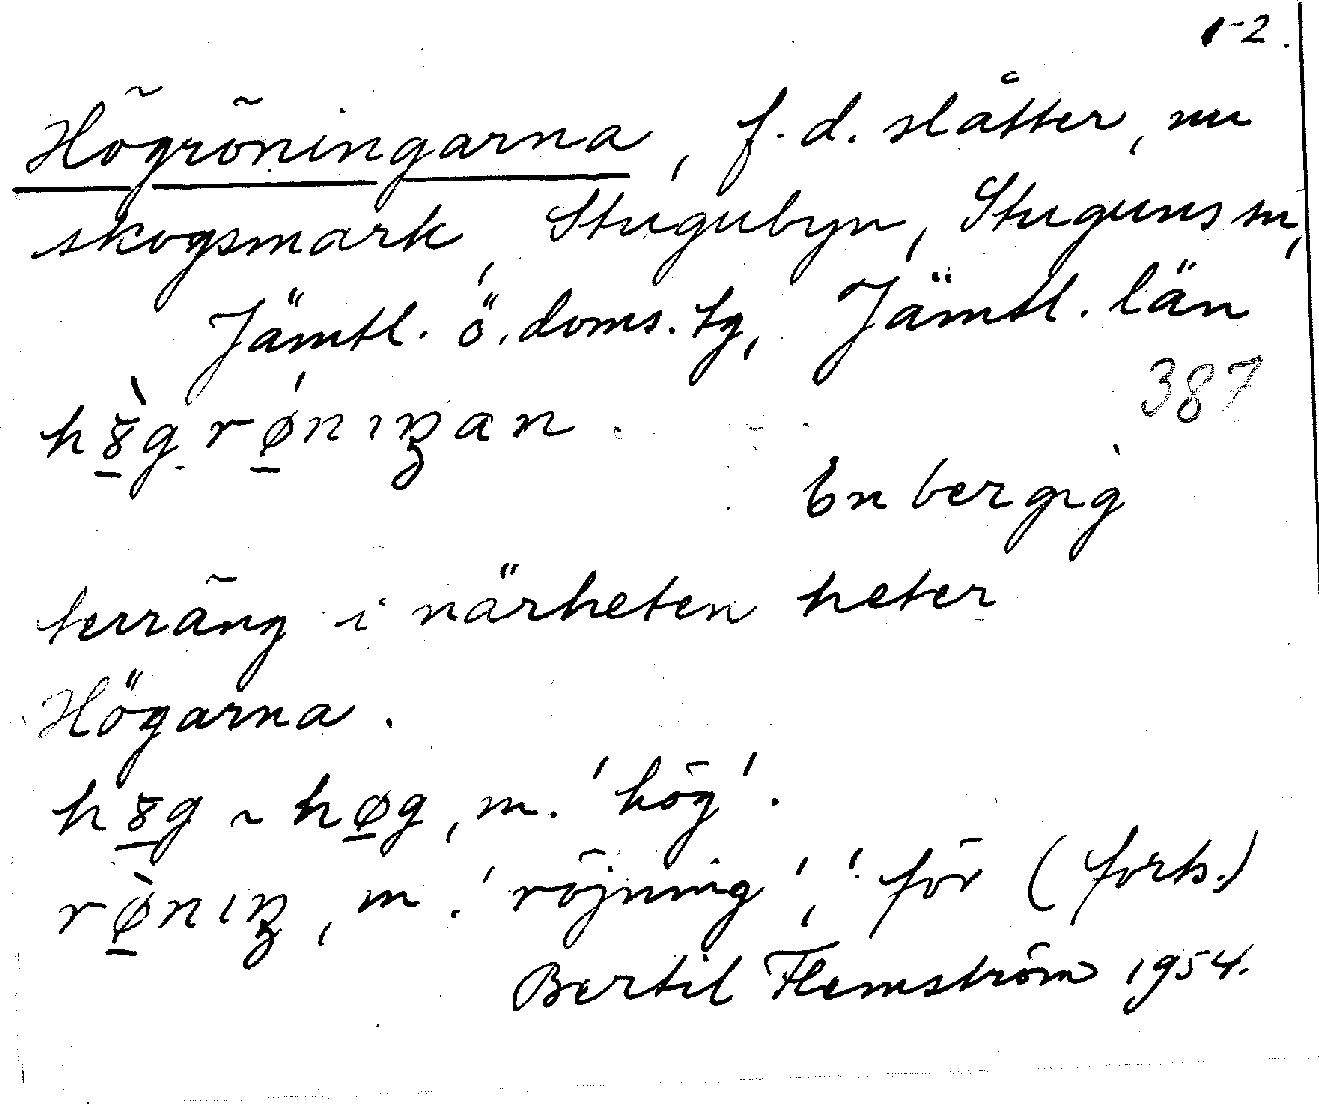 1-2.
Högröningarna, f.d. slåtter, nu
skogsmark, Stugubyn, Stuguns sn,
Jämtl. ö. doms. tg, Jämtl. län
387
En bergig
terräng i närheten heter
Högarna.
m. 'hög'.
m. 'röjning', 'för (forts.)
Bertil Flemström 1954.